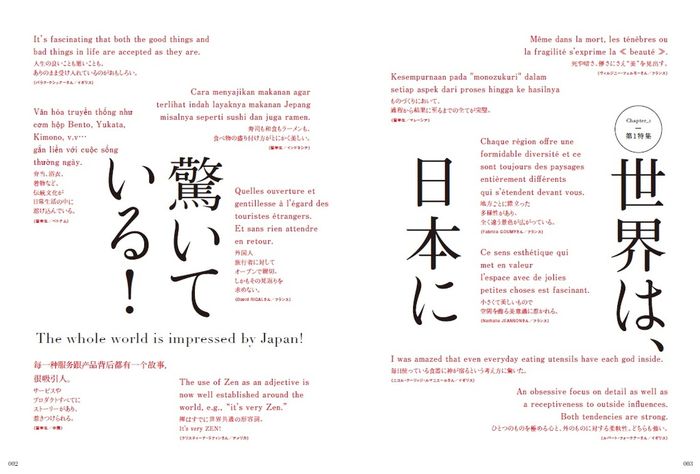 Chapter_1
第1特集
世界は、
日本に
驚いて
いる！
The whole world is impressed by Japan!
Même dans la mort, les ténèbres ou
la fragilité s'exprime la《 beauté 》.
死や暗さ、儚さにさえ“美”を見出す。
Kesempurnaan pada "monozukuri" dalam
setiap aspek dari proses hingga ke hasilnya
ものづくりにおいて、
過程から結果に至るまでの全てが完璧。
(留学生/マレーシア)
Chaque région offre une
formidable diversité et ce
sont toujours des paysages
entièrement différents
qui s'étendent devant vous.
地方ごとに際立った
多様性があり、
全く違う景色が広がっている。
Ce sens esthétique qui
met en valeur
l'espace avec de jolies
petites choses est fascinant.
小さくて美しいもので
空間を飾る美意識に惹かれる。
I was amazed that even everyday eating utensils have each god inside.
毎日使っている食器に神が宿るという考え方に驚いた。
An obsessive focus on detail as well as
a receptiveness to outside influences.
Both tendencies are strong.
ひとつのものを極める心と、外のものに対する柔軟性。どちらも強い。
It's fascinating that both the good things and
bad things in life are accepted as they are.
人生の良いことも悪いことも、
ありのまま受け入れているのがおもしろい。
Cara menyajikan makanan agar
terlihat indah layaknya makanan Jepang
misalnya seperti sushi dan juga ramen.
寿司も和食もラーメンも、
食べ物の盛り付け方がとにかく美しい。
(留学生/インドネシア)
Văn hóa truyền thống như
cơm hộp Bento, Yukata,
Kimono, v.v…
gắn liền với cuộc sống
thường ngày.
弁当、浴衣、
着物など、
伝統文化が
日常生活の中に
溶け込んでいる。
(留学生/ベトナム)
Quelles ouverture et
gentillesse à l'égard des
touristes étrangers.
Et sans rien attendre
en retour.
外国人
旅行者に対して
オープンで親切。
しかもその見返りを
求めない。
每一种服务跟产品背后都有一个故事,
很吸引人。
サービスや
プロダクトすべてに
ストーリーがあり、
惹きつけられる。
(留学生/中国)
The use of Zen as an adjective is
now well established around the
world, e.g., "it's very Zen."
禅はすでに世界共通の形容詞。
It's very ZEN!
002
003